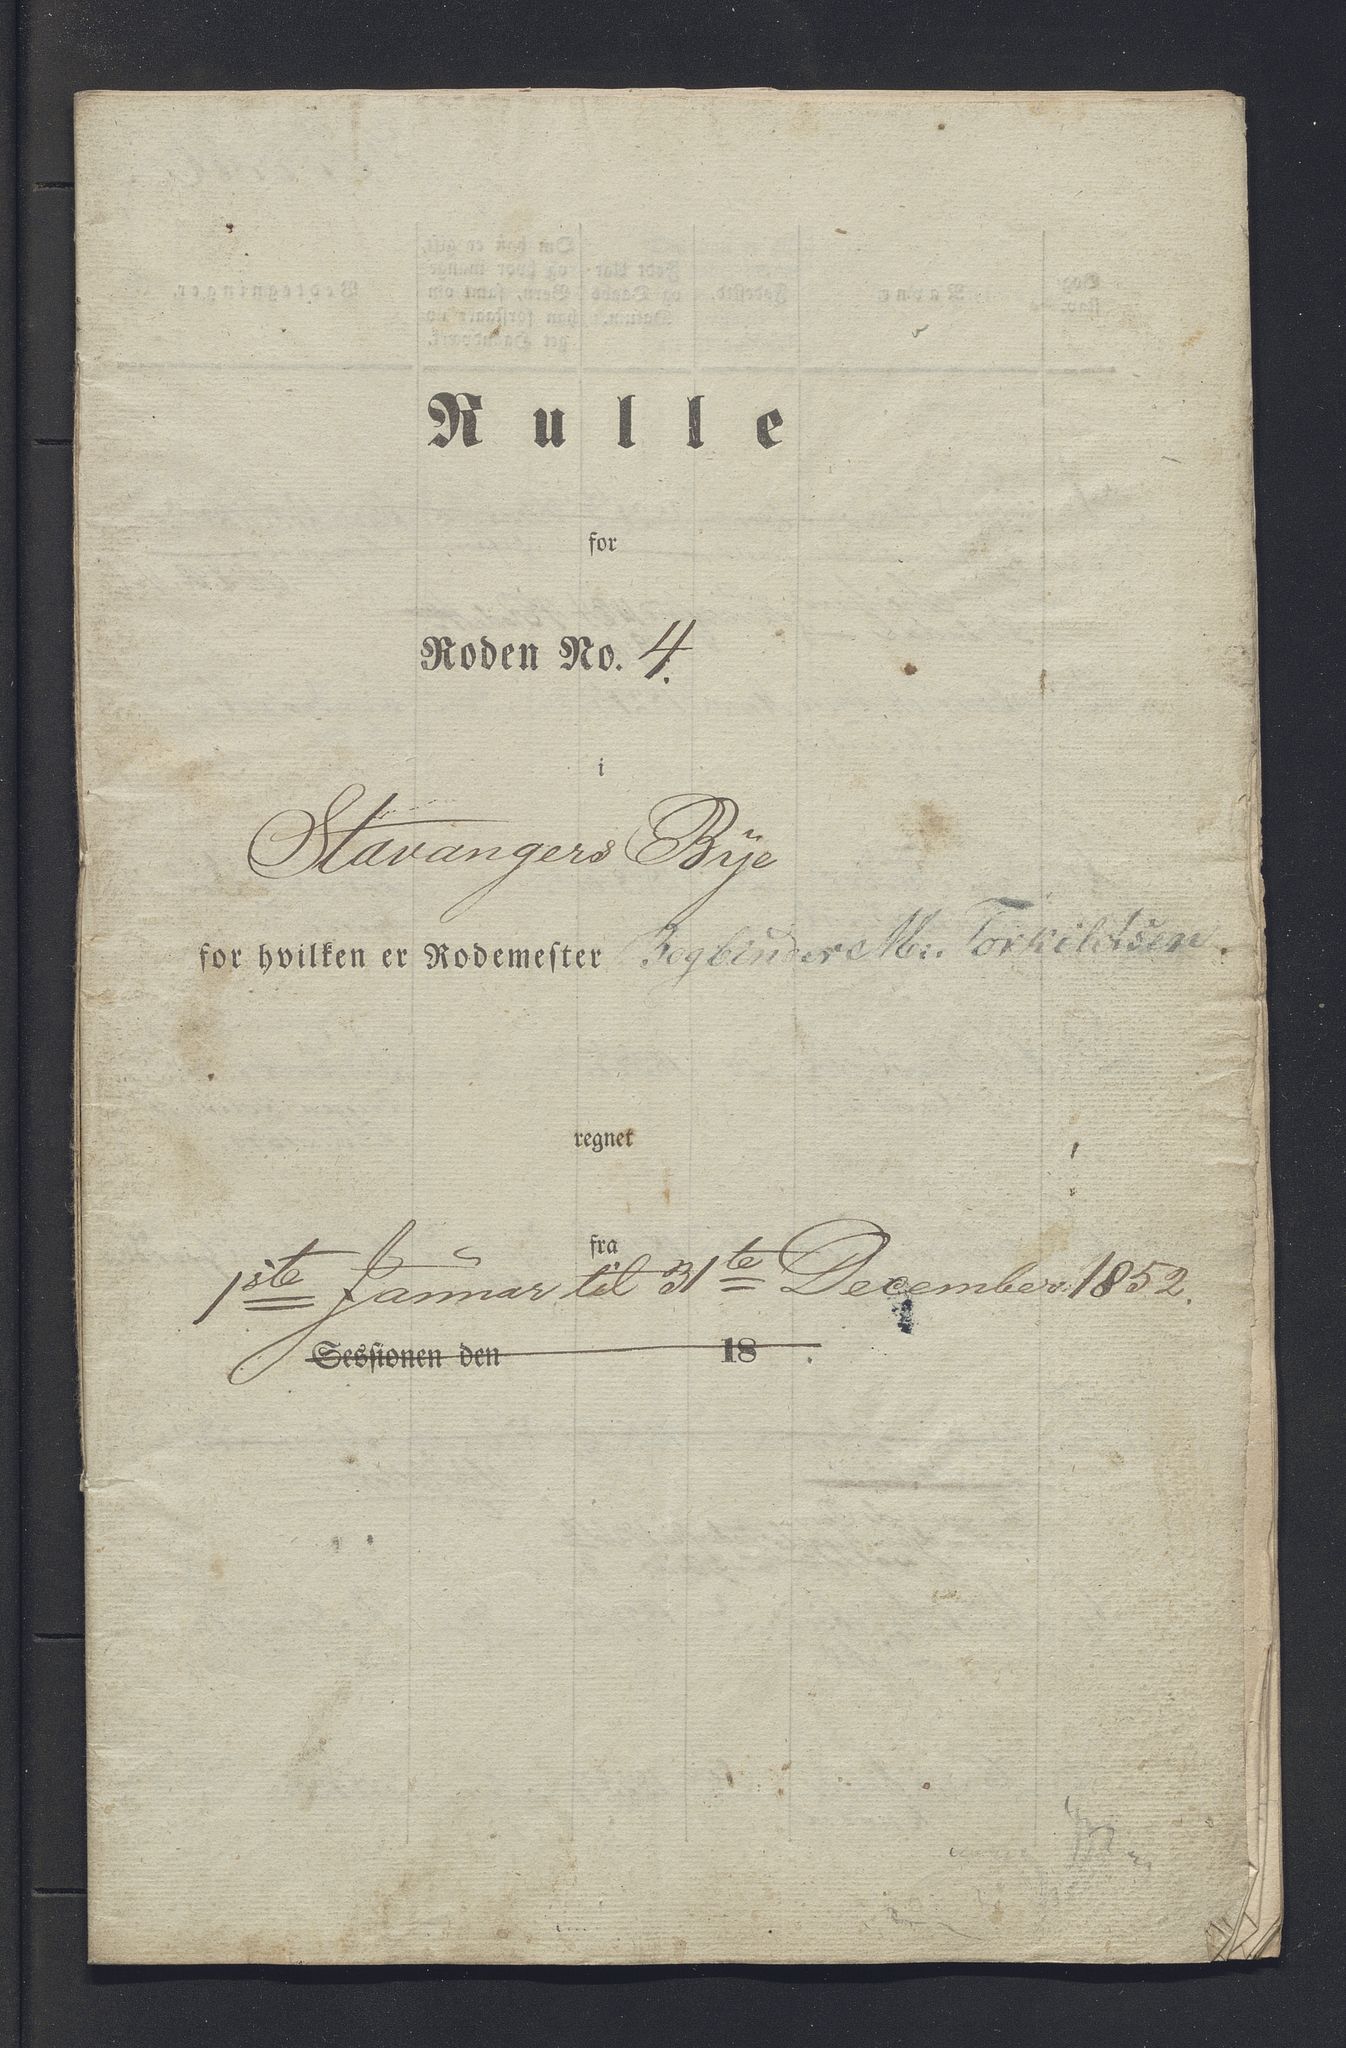 Rulle
for
Roden No. 4.
i
Stavangers Bÿe
for hvilken er Rodemester Bogbinder M.. Torkildtsen.
regnet
fra
1ste Januar til 31te December 1852.
Sessionen den 18 .